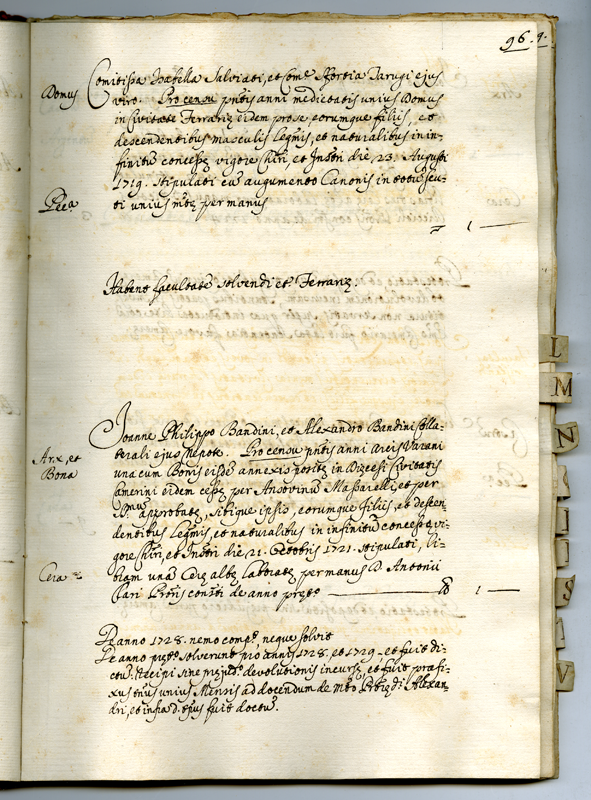 96. 9.
Domus
Comitissa Isabella Salviati, et Com. Sfortia Tarugi ejus
viro. Pro censu pntis anni medietatis unius Domus
in Civitate Ferrariæ eidem pro se, eorumque filiis, et
descendentibus masculis legmis, et naturalibus in in-
finitu concess. vigore Chiri, et Instri die 23. Augusti
1719. stipulati cu augumento Canonis in totu scu-
ti unius mtæ per manus
1 —
Habent facultate solvendi et Ferrariæ.
Arx, et
Bona
Joanne Philippo Bandini, et Alexandro Bandini Colla-
terali ejus Nepote. Pro censu pntis anni Arcis Varani
una cum Bonis eisde annexis positis in Diæcesi Civitatis
Camerini eidem cess. per Ansovinu Massarelli, et per
approbatæ, sibique ipsis, eorumque filiis, et descen-
dentibus legmis, et naturalibus in infinitu concess. vi-
gore Chiri, et Instri die 21. Octobris 1721. stipulati, li-
Cera
bram una Ceræ albæ laboratæ per manus D. Antonii
Clari Pròris constti de anno præto — 1 —
De anno 1728. nemo comp. neque solvit
De anno præto solverunt pro annis 1728. et 1729. et fuit di-
ctu: Recipi sine præjud. devolutionis incursæ, et fuit præfi-
xus tnus unius Mensis ad docendum de Alexan-
dri, et infra d. tpus fuit doctu.
L
M
N
S
V